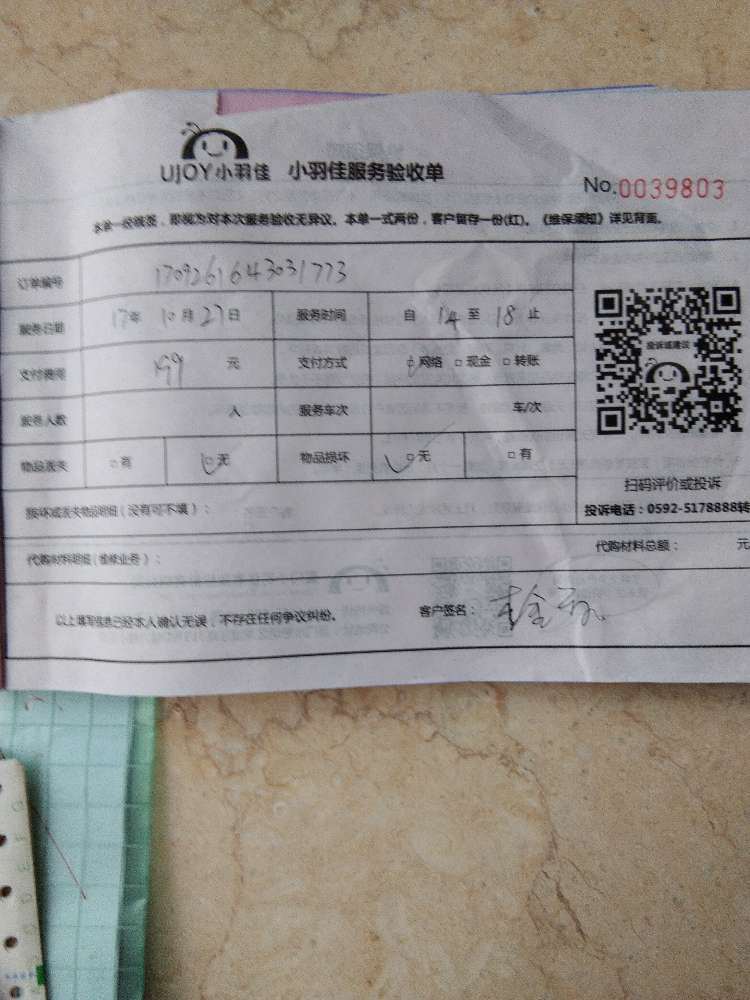 UJOY小羽佳 小羽佳服务验收单
No.0039803
本单一经签签，即视为对本次服务验收无异议。本单一式两份，客户留存一份(红)。《维保须知》详见背面。
订单编号 1709261643031773
服务日期 17年 10月 27日 服务时间 自 14 至 18 止
支付费用 199 元 支付方式 网络 现金 转账
服务人数 人 服务车次 车/次
物品丢失 有 无 物品损坏 无 有
投诉或建议
扫码评价或投诉
投诉电话：0592-5178888转
损坏或丢失物品明细（没有可不填）：
代购材料明细（维修业务）： 代购材料总额： 元
以上填写信息已经本人确认无误，不存在任何争议纠纷。 客户签名：